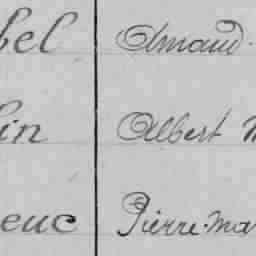 bel Amaud.
lin Albert M
euc Pierre-Ma